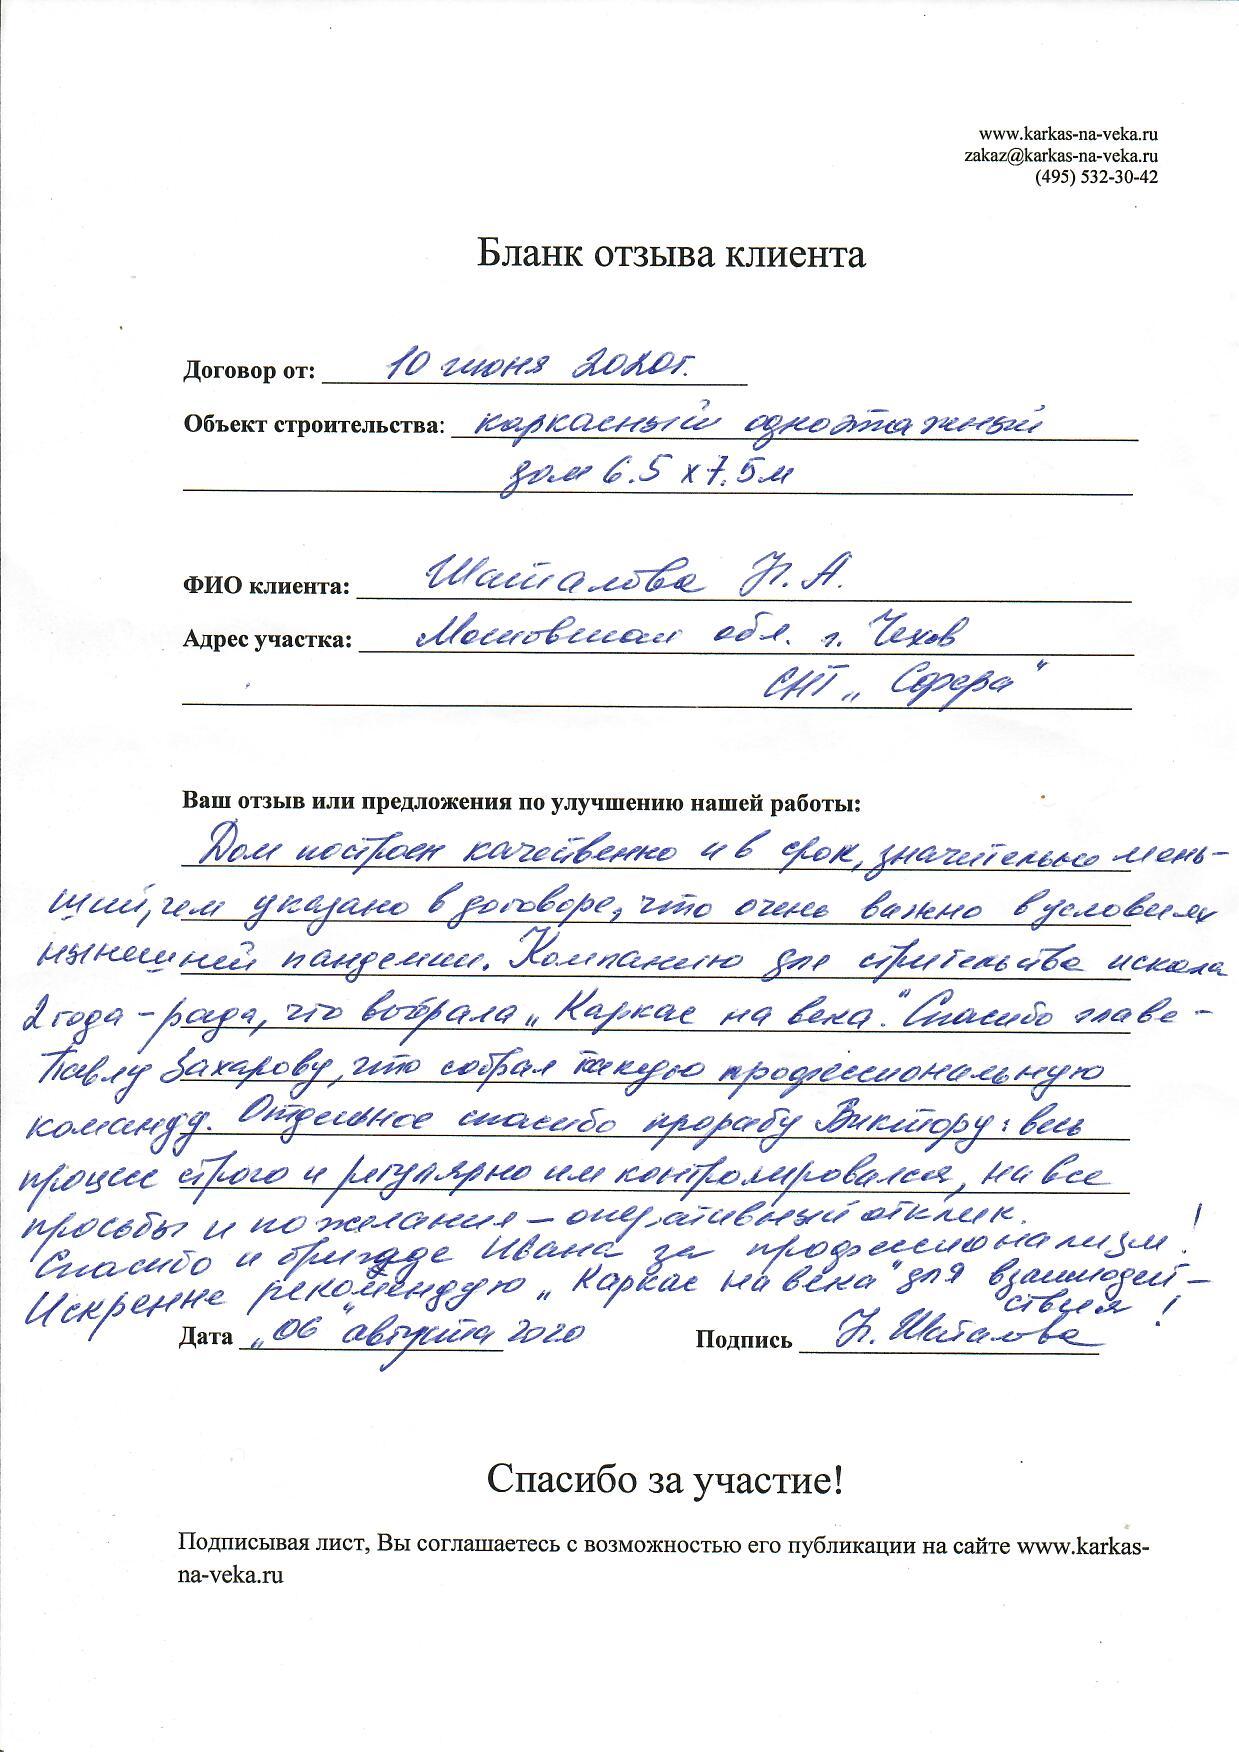 www.karkas-na-veka.ru
zakaz@karkas-na-veka.ru
(495) 532-30-42
Бланк отзыва клиента
Договор от: 10 июня 2020г.
Объект строительства: каркасный одноэтажный
дом 6.5 х 7.5 м
ФИО клиента: Шаталова Н. А.
Адрес участка: Московская обл. г. Чехов
СНТ „Сфера"
Ваш отзыв или предложения по улучшению нашей работы:
Дом построен качественно и в срок, значительно мень-
ший, чем указано в договоре, что очень важно в условиях
нынешней пандемии. Компанию для стрительства искала
2 года - рада, что выбрала „Каркас на века". Спасибо главе -
Павлу Захарову, что собрал такую профессиональную
команду. Отдельное спасибо прорабу Виктору: весь
процесс строго и регулярно им контролировался, на все
просьбы и пожелания - оперативный отклик.
Спасибо и бригаде Ивана за профессионализм!
Искренне рекомендую „Каркас на века" для взаимодей-
ствия!
Дата „06" августа 2020 Подпись Н. Шаталова
Спасибо за участие!
Подписывая лист, Вы соглашаетесь с возможностью его публикации на сайте www.karkas-
na-veka.ru